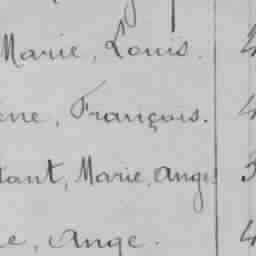 Marie, Louis.
ène, François.
tant, Marie, Ange
e, Ange.